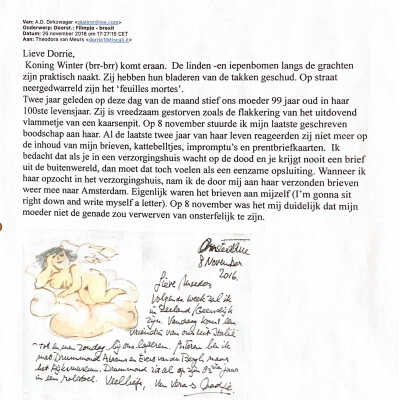 Van: A.D. Dekzwager
Onderwerp: Doorst.: Filmpje - brexit
Datum: 26 november 2018 om 17:27:15 CET
Aan: Theodora van Meurs
Lieve Dorrie,
Koning Winter (brr-brr) komt eraan. De linden -en iepenbomen langs de grachten
zijn praktisch naakt. Zij hebben hun bladeren van de takken geschud. Op straat
neergedwarreld zijn het 'feuilles mortes'.
Twee jaar geleden op deze dag van de maand stief ons moeder 99 jaar oud in haar
100ste levensjaar. Zij is vreedzaam gestorven zoals de flakkering van het uitdovend
vlammetje van een kaarsenpit. Op 8 november stuurde ik mijn laatste geschreven
boodschap aan haar. Al de laatste twee jaar van haar leven reageerden zij niet meer op
de inhoud van mijn brieven, kattebelltjes, impromptu's en prentbriefkaarten. Ik
bedacht dat als je in een verzorgingshuis wacht op de dood en je krijgt nooit een brief
uit de buitenwereld, dan moet dat toch voelen als een eenzame opsluiting. Wanneer ik
haar opzocht in het verzorgingshuis, nam ik de door mij aan haar verzonden brieven
weer mee naar Amsterdam. Eigenlijk waren het brieven aan mijzelf (I'm gonna sit
right down and write myself a letter). Op 8 november was het mij duidelijk dat mijn
moeder niet de genade zou verwerven van onsterfelijk te zijn.
8 November
2016.
Lieve Moeder
Volgende week zal ik
in Zeeland
zijn. Vandaag komt een
vriendin van ons uit Italië
tot en met zondag bij ons logeren. Gisteren ben ik
met Drummond en Evert van den Bergh naar
het Rijksmuseum. Drummond zat al op zijn
in een rolstoel. Veel liefs, van Vera &